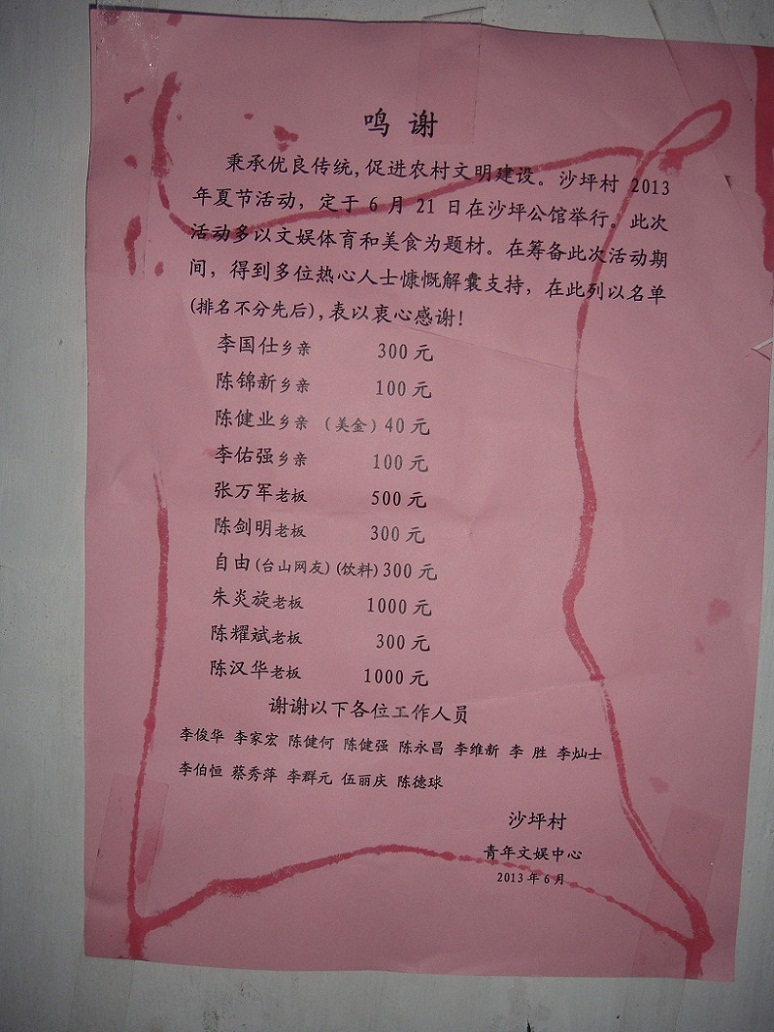 鸣 谢
秉承优良传统,促进农村文明建设。沙坪村 2013
年夏节活动，定于 6 月 21 日在沙坪公馆举行。此次
活动多以文娱体育和美食为题材。在筹备此次活动期
间，得到多位热心人士慷慨解囊支持，在此列以名单
(排名不分先后),表以衷心感谢!
李国仕乡亲 300 元
陈锦新乡亲 100 元
陈健业乡亲 （美金）40 元
李佑强乡亲 100 元
张万军老板 500 元
陈剑明老板 300 元
自由(台山网友)(饮料)300 元
朱炎旋老板 1000 元
陈耀斌老板 300 元
陈汉华老板 1000 元
谢谢以下各位工作人员
李俊华 李家宏 陈健何 陈健强 陈永昌 李维新 李 胜 李灿士
李伯恒 蔡秀萍 李群元 伍丽庆 陈德球
沙坪村
青年文娱中心
2013 年 6 月